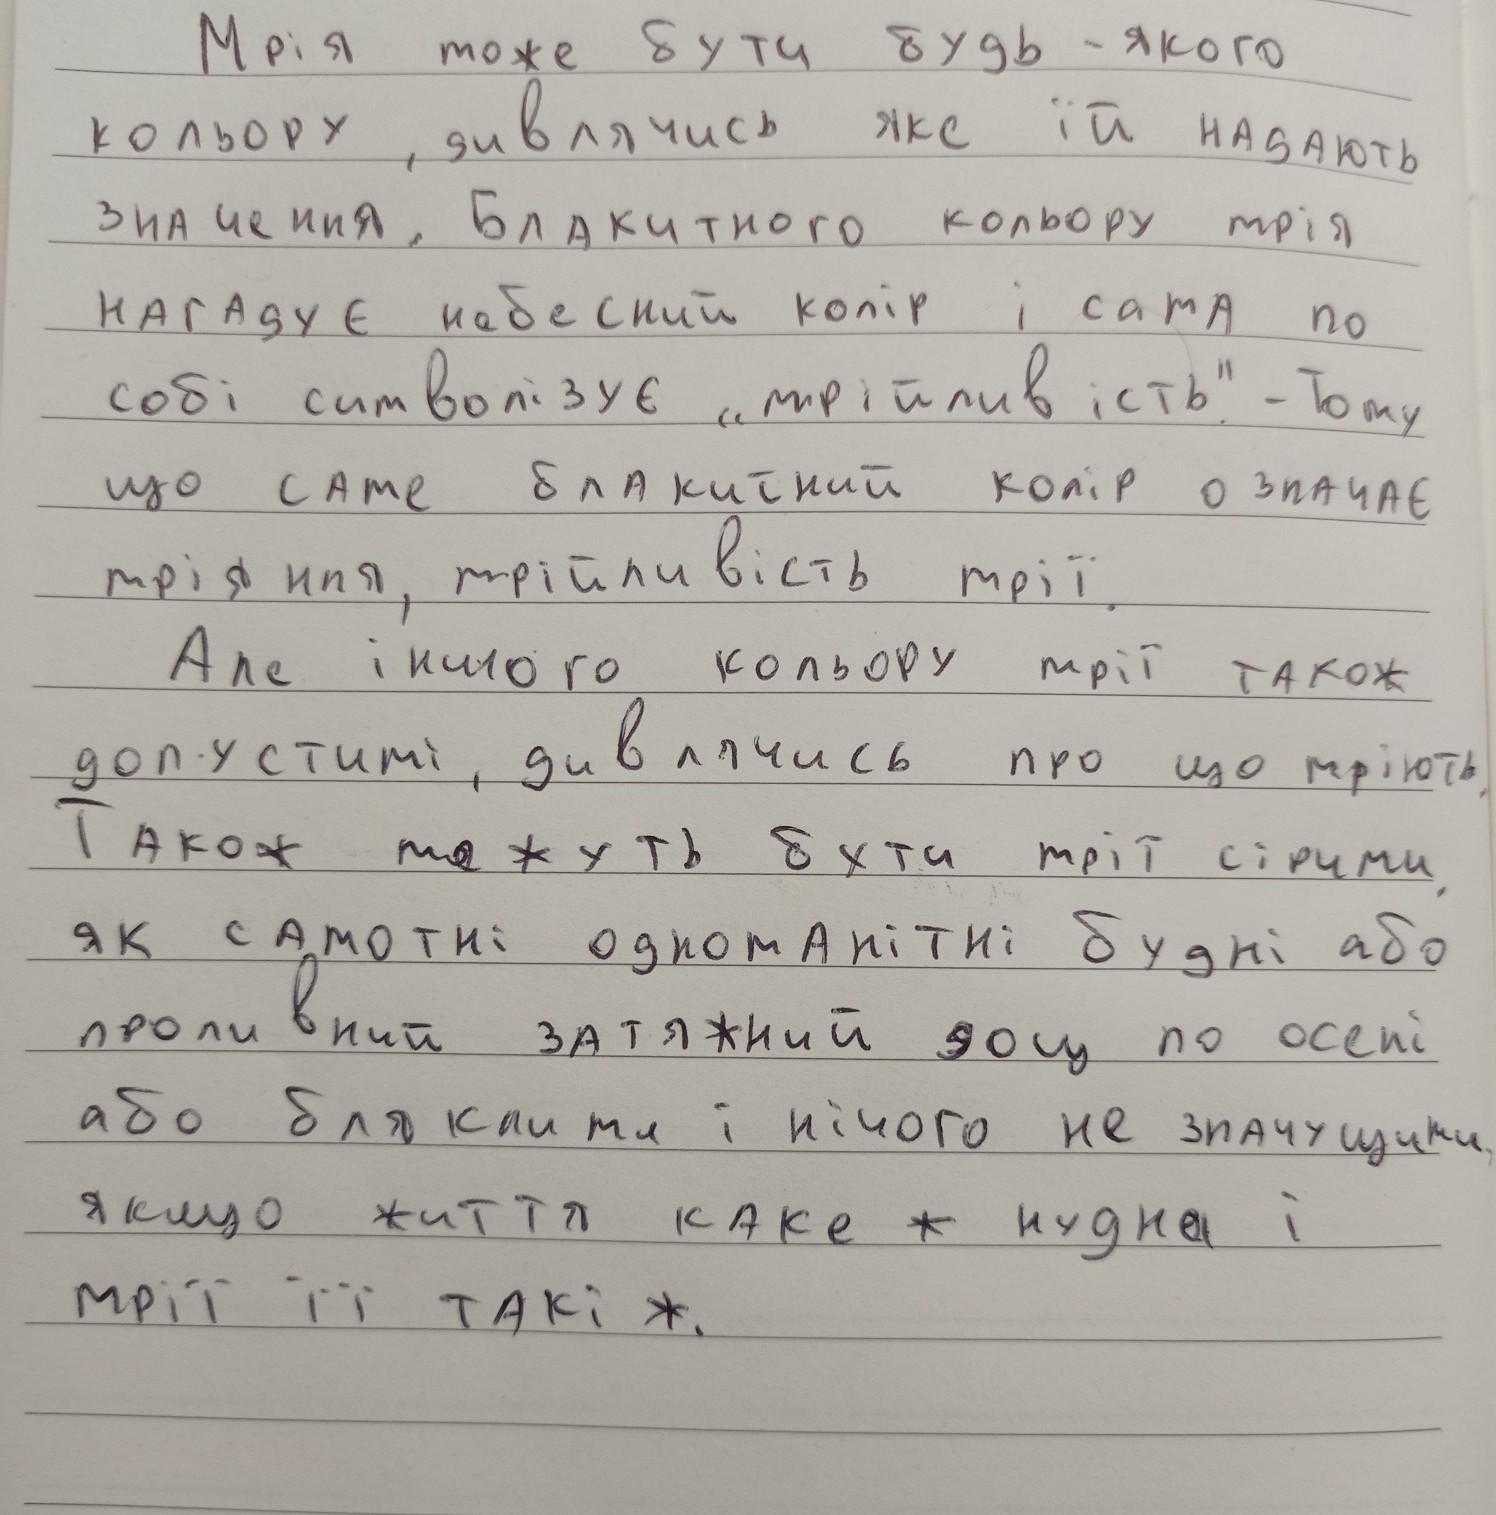 Мрія може бути будь-якого
кольору, дивлячись яке їй надають
значення. Блакитного кольору мрія
нагадує небесний колір і сама по
собі символізує „мрійливість". - Тому
що саме блакитний колір означає
мріяння, мрійливість мрії.
Але іншого кольору мрії також
допустимі, дивлячись про що мріють.
Також можуть бути мрії сірими,
як самотні одноманітні будні або
проливний затяжний дощ по осені
або бляклими і нічого не значущими,
якщо життя каке ж нудна і
мрії її такі ж.